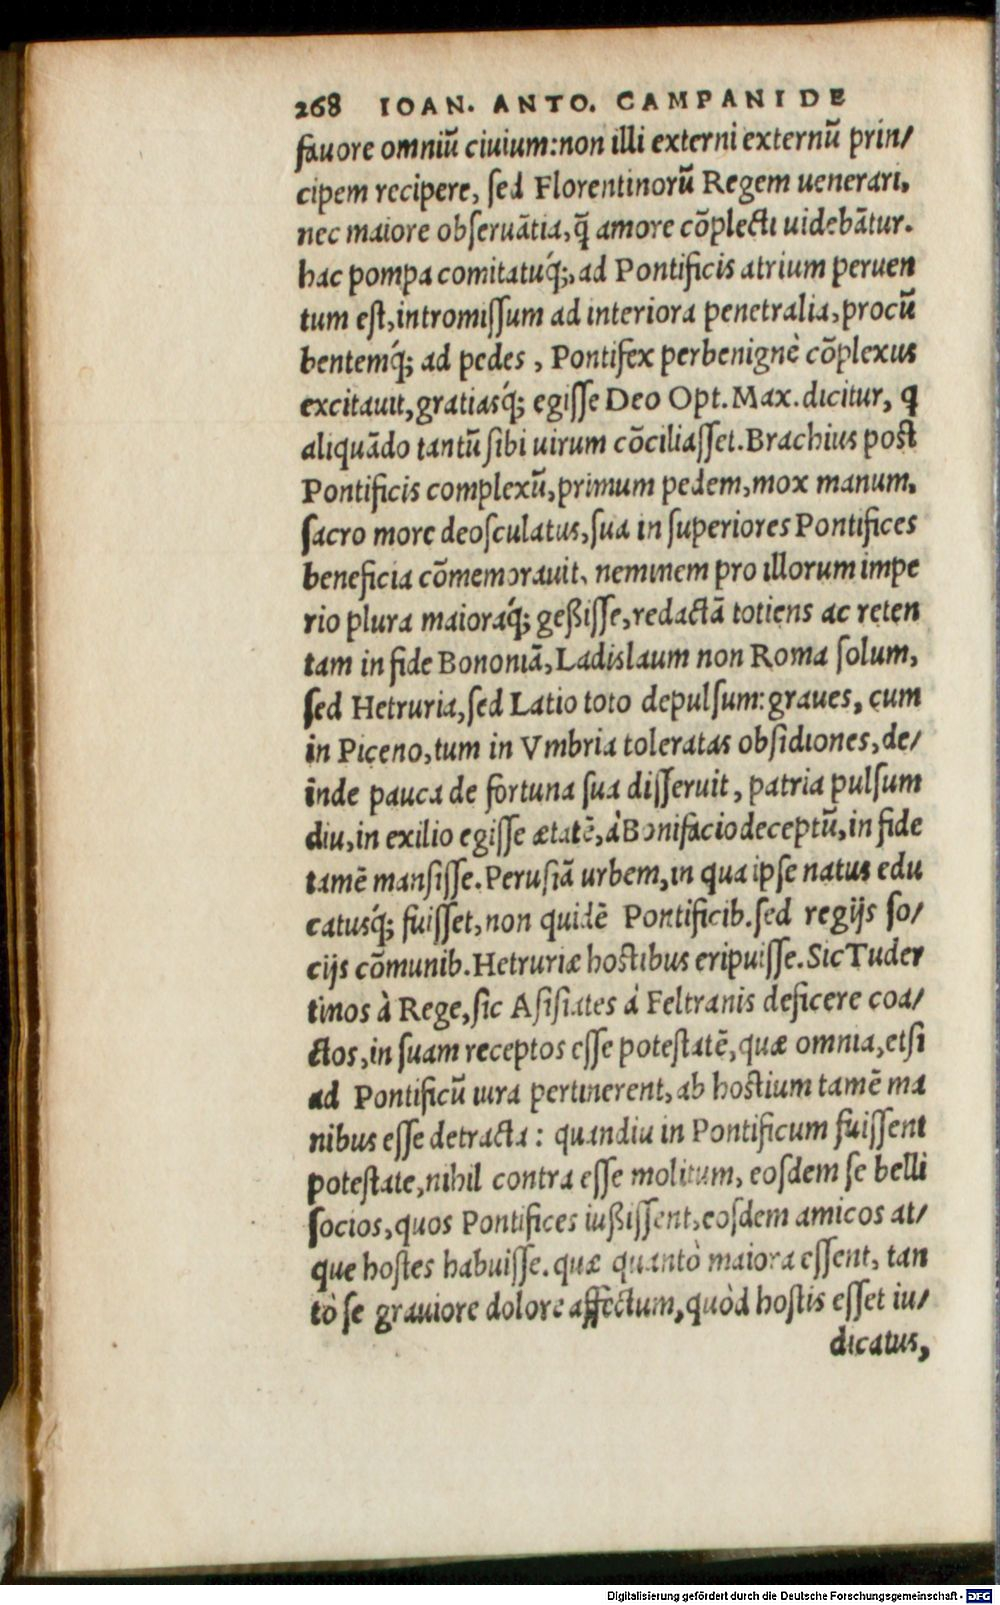 268 IOAN. ANTO. CAMPANI DE
fauore omniū ciuium: non illi externi externū prin/
cipem recipere, ſed Florentinorū Regem uenerari,
nec maiore obſeruātia, q̄ amore cōplecti uidebātur.
hac pompa comitatuq́;, ad Pontificis atrium peruen
tum eſt, intromiſſum ad interiora penetralia, procū
bentemq́; ad pedes, Pontifex perbenignè cōplexus
excitauit, gratiasq́; egiſſe Deo Opt. Max. dicitur, ꝙ
aliquādo tantū ſibi uirum cōciliaſſet. Brachius poſt
Pontificis complexū, primum pedem, mox manum,
ſacro more deoſculatus, ſua in ſuperiores Pontifices
beneficia cōmemorauit, neminem pro illorum impe
rio plura maioraq́; geßiſſe, redactā totiens ac reten
tam in fide Bononiā, Ladislaum non Roma ſolum,
ſed Hetruria, ſed Latio toto depulſum: graues, cum
in Piceno, tum in Vmbria toleratas obſidiones, de/
inde pauca de fortuna ſua diſſeruit, patria pulſum
diu, in exilio egiſſe ætatē, à Bonifacio deceptū, in fide
tamē manſiſſe. Peruſiā urbem, in qua ipſe natus edu
catusq́; fuiſſet, non quidē Pontificib. ſed regijs ſo/
cijs cōmunib. Hetruriæ hoſtibus eripuiſſe. Sic Tuder
tinos à Rege, ſic Aſiſiates à Feltranis deficere coa/
ctos, in ſuam receptos eſſe poteſtatē, quæ omnia, etſi
ad Pontificū iura pertinerent, ab hoſtium tamē ma
nibus eſſe detracta: quandiu in Pontificum fuiſſent
poteſtate, nihil contra eſſe molitum, eoſdem ſe belli
ſocios, quos Pontifices iußiſſent, eoſdem amicos at/
que hoſtes habuiſſe. quæ quantò maiora eſſent, tan
tò ſe grauiore dolore affectum, quòd hoſtis eſſet iu/
dicatus,
Digitalisierung gefördert durch die Deutsche Forschungsgemeinschaft - DFG